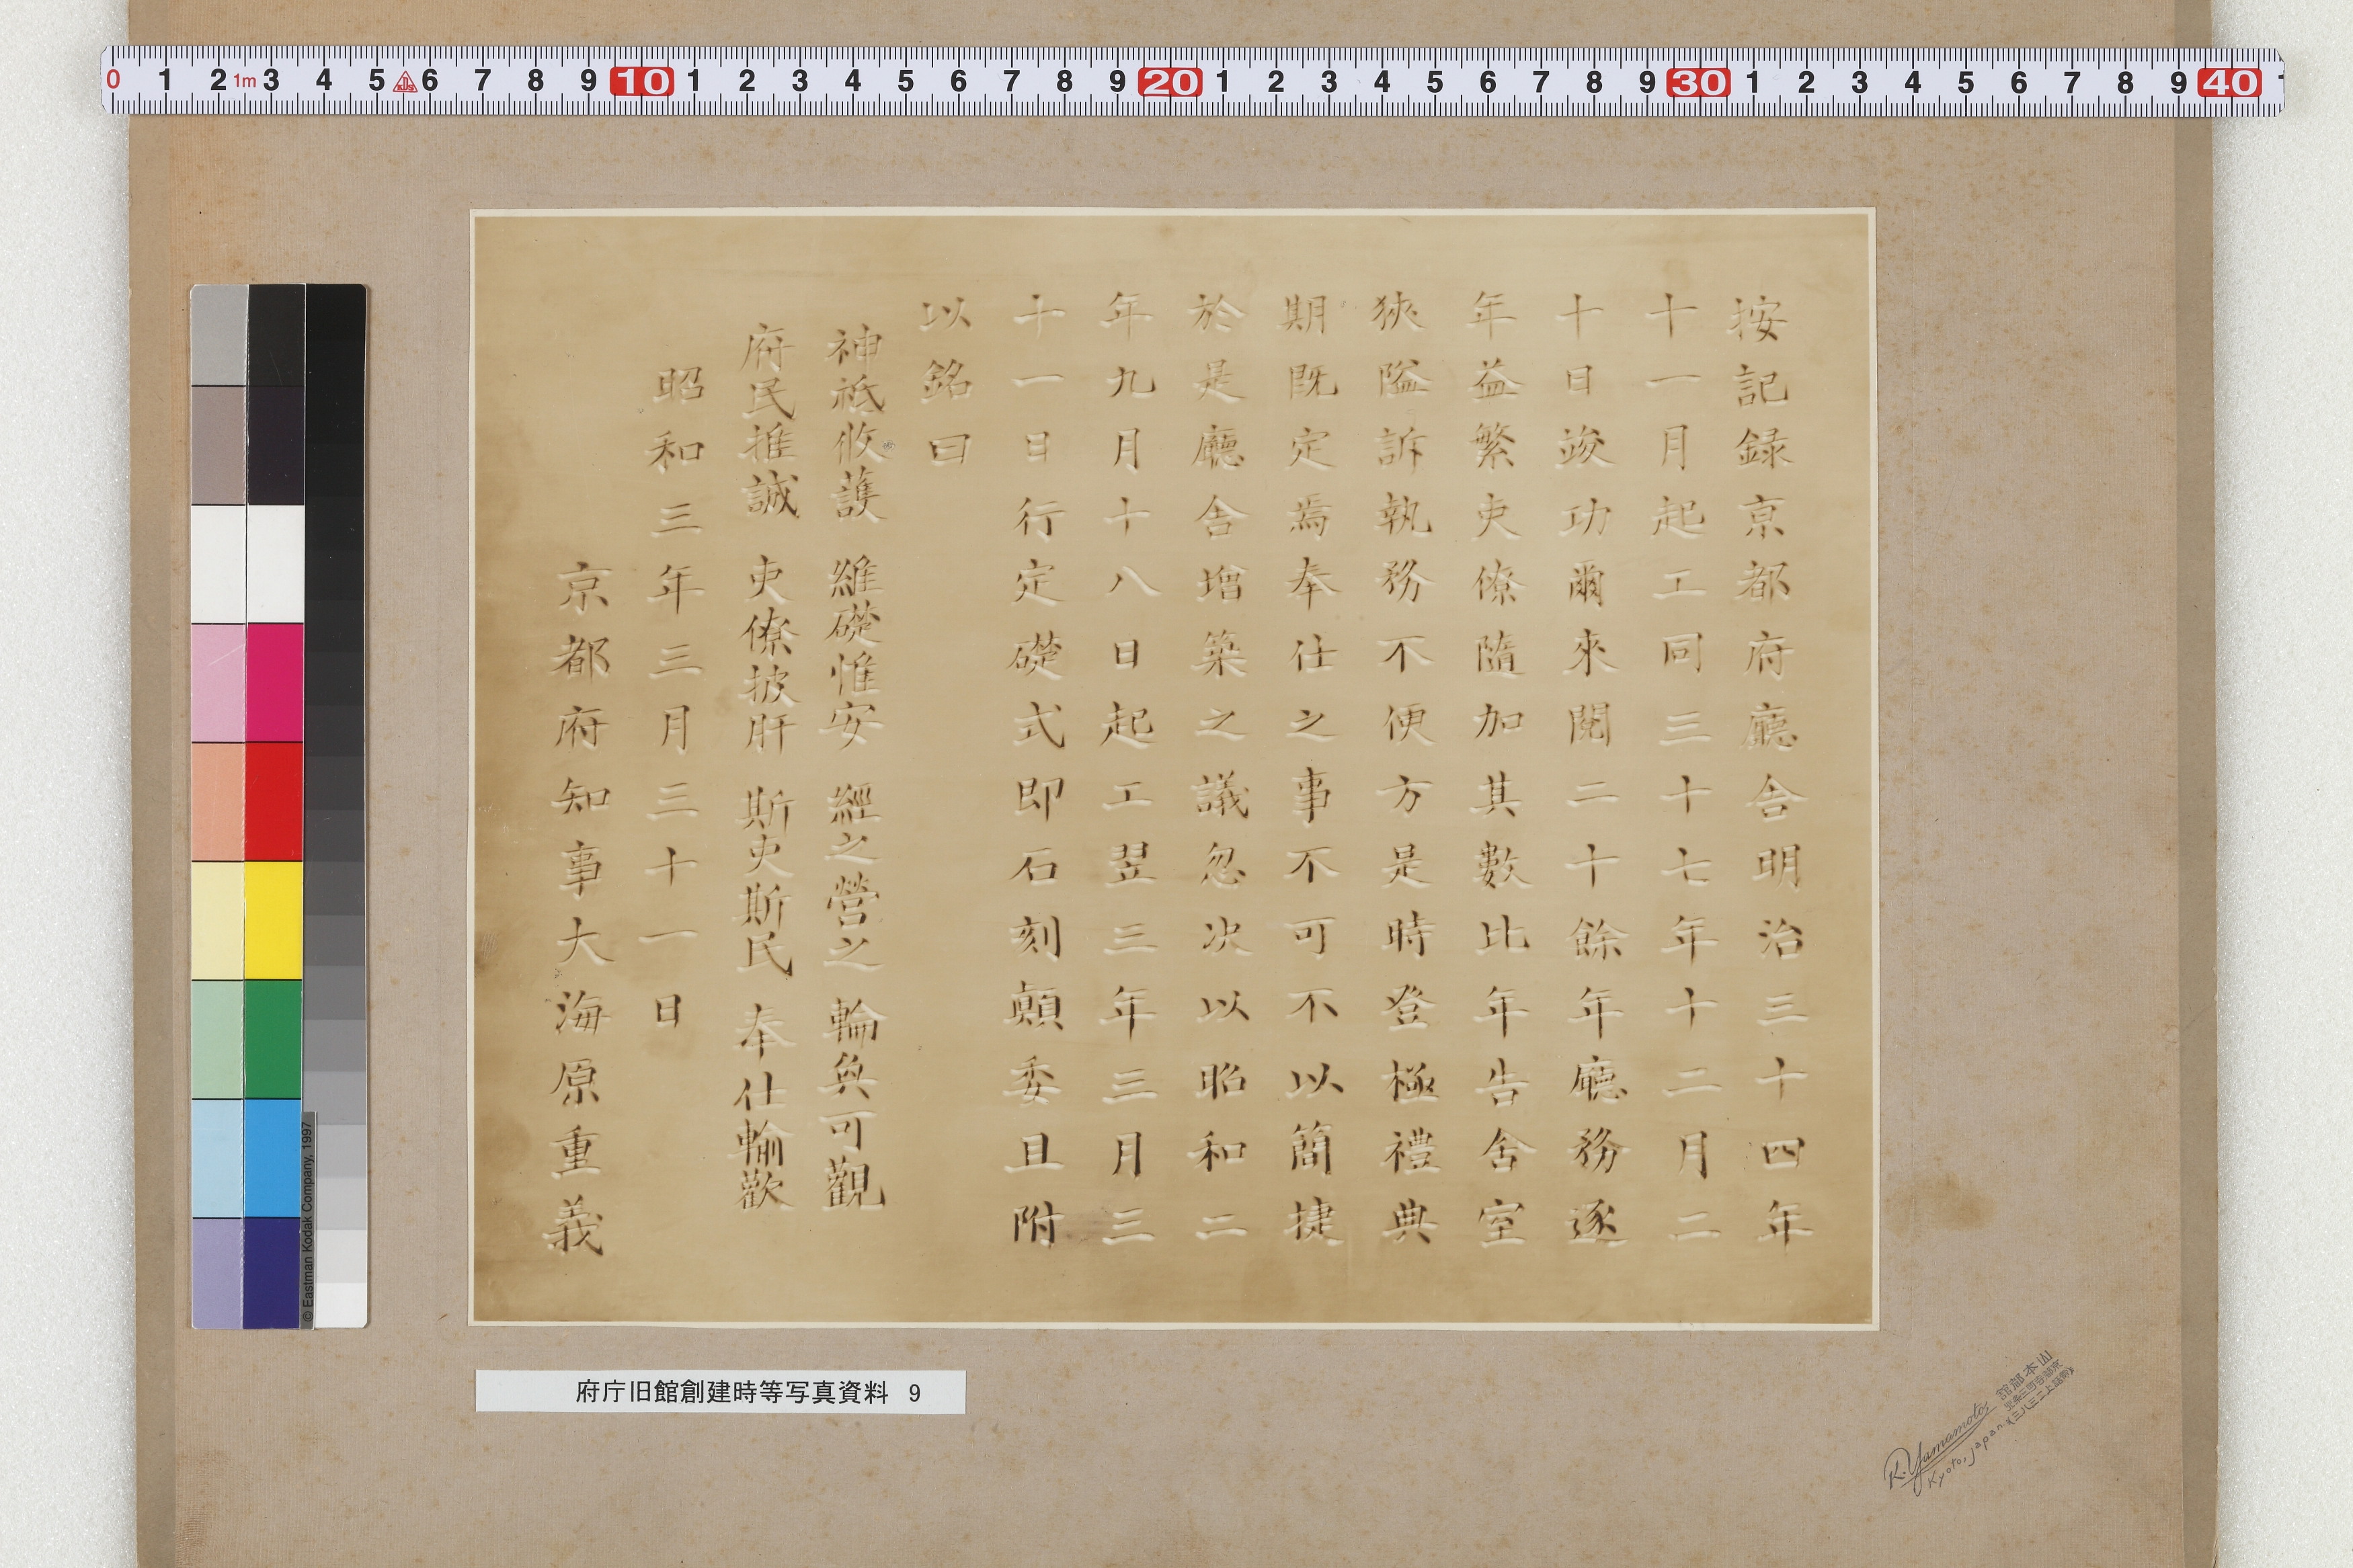 按記録京都府廳舎明治三十四年
十一月起工同三十七年十二月二
十日竣功爾來閲二十餘年廳務逐
年益繁吏僚隨加其數比年告舎室
狹隘訴執務不便方是時登極禮典
期既定焉奉仕之事不可不以簡捷
於是廳舎增築之議忽决以昭和二
年九月十八日起工翌三年三月三
十一日行定礎式即石刻顛委且附
以銘曰
神祇攸護 維礎惟安 經之營之 輪奐可觀
府民推誠 吏僚披肝 斯吏斯民 奉仕輸歡
昭和三年三月三十一日
京都府知事大海原重義
府庁旧館創建時等写真資料 9
0 1 2 1m 3 4 5 6 7 8 9 10 1 2 3 4 5 6 7 8 9 20 1 2 3 4 5 6 7 8 9 30 1 2 3 4 5 6 7 8 9 40
© Eastman Kodak Company, 1997
K. Yamamoto,
Kyoto, Japan.